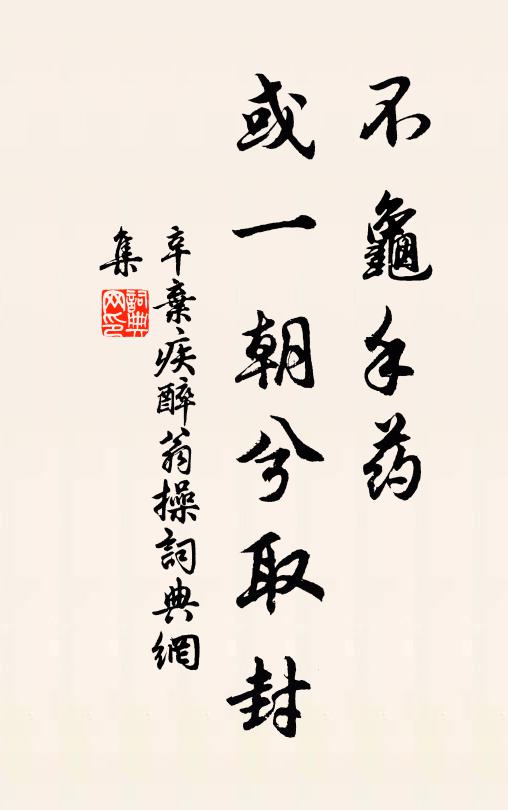 不龜手药
或一朝兮取封
辛棄疾醉翁操詞典網
集
詞典网印